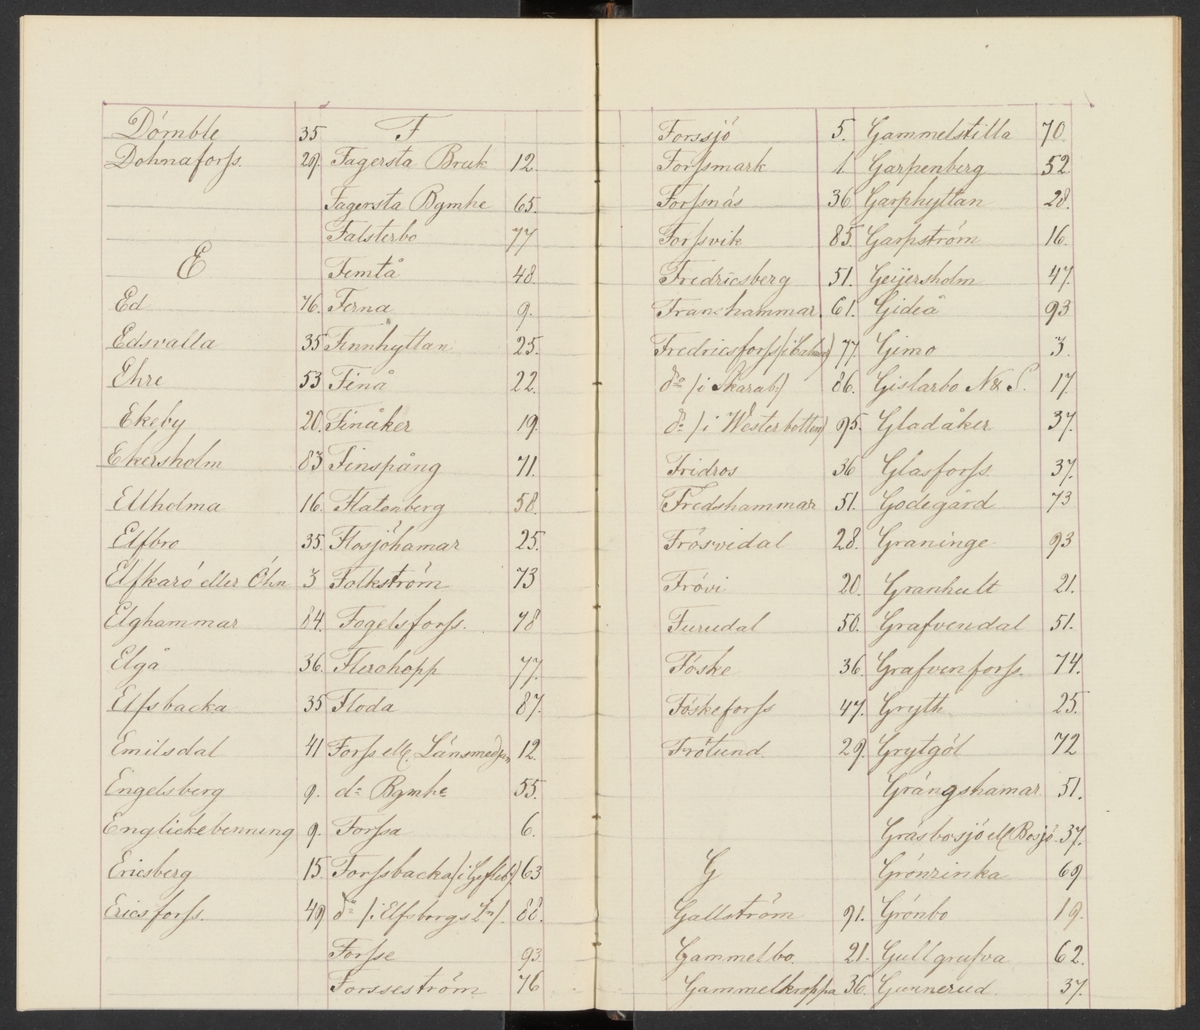 Dömble 35
Dohnaforss. 29.
E
Ed 76.
Edsvalla 35
Ehre 53
Ekeby 20.
Ekersholm 83
Ellholma 16.
Elfbro 35.
Elfkarö eller Öhn 3
Elghammar 84.
Elgå 36.
Elfsbacka 35
Emilsdal 41
Engelsberg 9.
Englickebenning 9.
Ericsberg 15
Ericsforss. 49
F
Fagersta Bruk 12.
Fagersta Bgmhe 65.
Falsterbo 77
Femtå 48.
Ferna 9.
Finnhyttan 25.
Finå 22.
Finåker 19.
Finspång 71.
Flatenberg 58.
Flosjöhamar 25.
Folkström 73
Fogelsforss. 78
Flerohopp 77.
Floda 87.
Forss ell. Länsmedjan 12.
do Bgmhe 55.
Forssa 6.
Forssbacka (i Gefleb.) 63
do /i Elfsborgs Ln/. 88.
Forsse 93
Forsseström 76
Forssjö 5.
Forssmark 1.
Forssnäs 36
Forssvik 85.
Fredricsberg 51.
Franshammar. 61.
Fredricsforss 77.
do /i Skarab/ 86.
do /i Westerbotten) 95.
Fridros 36
Fredshammar 51.
Frösvidal 28.
Frövi 20.
Furudal 50.
Föske 36.
Föskeforss 47.
Frötuna. 29.
G
Gallström 91.
Gammelbo. 21.
Gammelkroppa 36.
Gammelstilla 70.
Garpenberg 52.
Garphyttan 28.
Garpström 16.
Geijersholm 47.
Gideå 93
Gimo 3.
Gislarbo N & S. 17.
Gladåker 37.
Glasforss. 37.
Godegård 73
Graninge 93
Granhult 21.
Grafvendal 51.
Grafvenforss. 74.
Gryth. 25.
Grytgöl 72
Grängshamar 51.
Gräsbosjö ell Bosjö. 37.
Grönsinka 69
Grönbo 19.
Gullgrufva 62.
Gunnerud. 37.